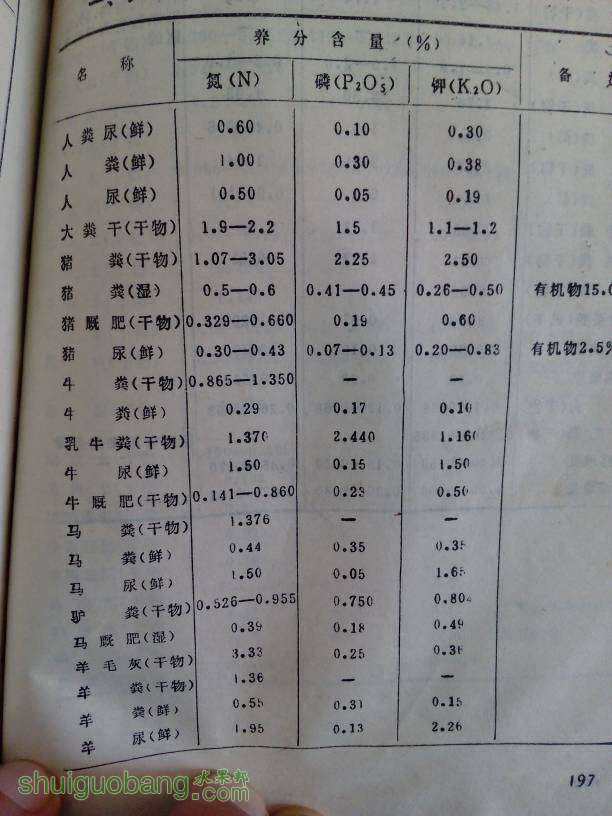 养分含量(%)
名称 氮(N) 磷(P₂O₅) 钾(K₂O) 备
人粪尿(鲜) 0.60 0.10 0.30
人粪(鲜) 1.00 0.30 0.38
人尿(鲜) 0.50 0.05 0.19
大粪干(干物) 1.9—2.2 1.5 1.1—1.2
猪粪(干物) 1.07—3.05 2.25 2.50
猪粪(湿) 0.5—0.6 0.41—0.45 0.26—0.50 有机物15.0
猪厩肥(干物) 0.329—0.660 0.19 0.60
猪尿(鲜) 0.30—0.43 0.07—0.13 0.20—0.83 有机物2.5%
牛粪(干物) 0.865—1.350 — —
牛粪(鲜) 0.29 0.17 0.10
乳牛粪(干物) 1.370 2.440 1.160
牛尿(鲜) 1.50 0.15 1.50
牛厩肥(干物) 0.141—0.860 0.23 0.50
马粪(干物) 1.376 — —
马粪(鲜) 0.44 0.35 0.35
马尿(鲜) 1.50 0.05 1.65
驴粪(干物) 0.526—0.955 0.750 0.804
马厩肥(湿) 0.39 0.18 0.49
羊毛灰(干物) 3.33 0.25
羊粪(干物) 1.36 — —
羊粪(鲜) 0.55 0.31 0.15
羊尿(鲜) 1.95 0.13 2.26
197
shuiguobang.com 水果邦